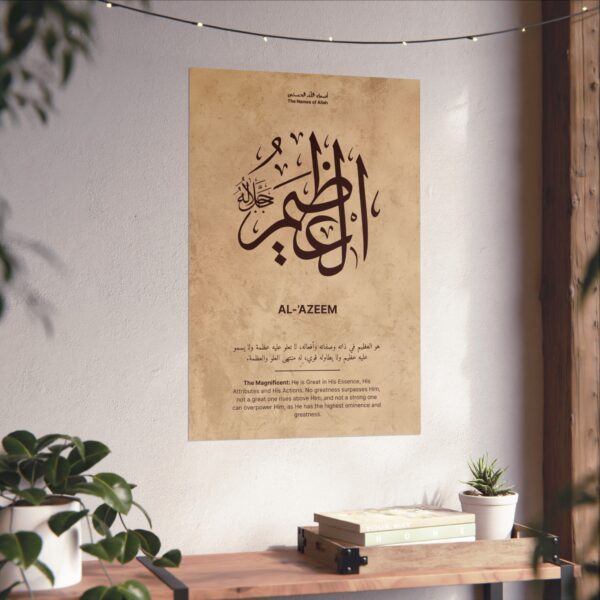 أسماء الله الحسنى
The Names of Allah
العظيم
جل جلاله
AL-'AZEEM
هو العظيم في ذاته وصفاته وأفعاله، لا تعلو عليه عظمة ولا يسمو
عليه عظيم ولا يطاوله قوي، له منتهى العلو والعظمة.
The Magnificent: He is Great in His Essence, His
Attributes and His Actions. No greatness surpasses Him,
not a great one rises above Him, and not a strong one
can overpower Him, as He has the highest eminence and
greatness.